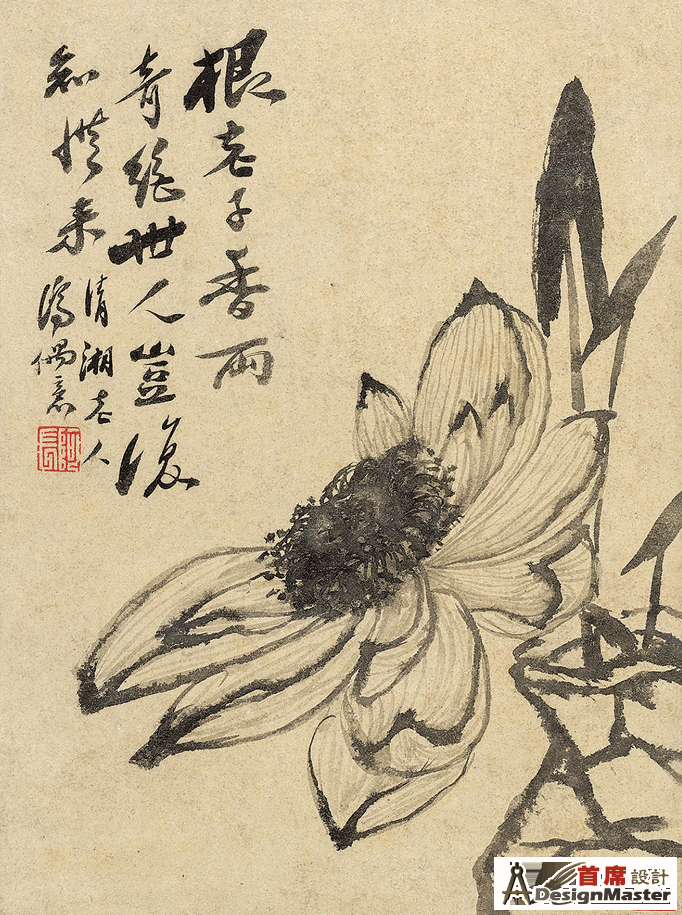 根老子香兩
奇絕世人豈復
知來
清湘老人
濟偶意
阿長
首席設計
DesignMaster